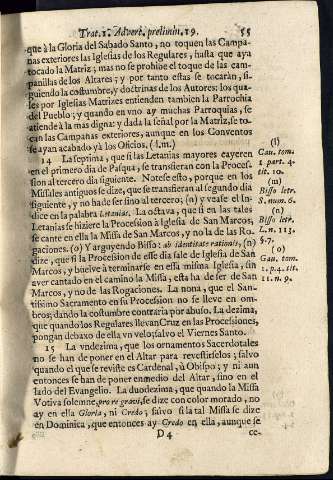 Trat. 1. Advert. prelimin. 19. 55
què à la Gloria del Sabado Santo, no toquen las Campa-
nas exteriores las Iglesias de los Regulares, hasta que aya
tocado la Matriz; mas no se prohibe el toque de las cam-
panillas de los Altares; y por tanto estas se tocaràn, si-
guiendo la costumbre, y doctrinas de los Autores: los qua-
les por Iglesias Matrizes entienden tambien la Parrochia
del Pueblo; y quando en vno ay muchas Parroquias, se
atiende à la mas digna: y dada la señal por la Matriz, se to-
can las Campanas exteriores, aunque en los Conventos
se ayan acabado yà los Oficios. (l.m.)
14 La septima, que si las Letanias mayores cayeren
en el primero dia de Pasqua, se transfieran con la Proces-
sion al tercero dia siguiente. Notese esto, porque en los
Missales antiguos se dize, que se transfieran al segundo dia
siguiente, y no ha de ser sino al tercero; (n) y vease el In-
dice en la palabra Letanias. La octava, que si en las tales
Letanias se hiziere la Procession à Iglesia de San Marcos,
se cante en ella la Missa de San Marcos, y no la de las Ro-
gaciones. (o) Y arguyendo Bisso: ab identitate rationis, (n)
dize, que si la Procession de esse dia sale de Iglesia de San
Marcos, y buelve à terminarse en essa misma Iglesia, sin
aver cantado en el camino la Missa; esta ha de ser de San
Marcos, y no de las Rogaciones. La nona, que el San-
tissimo Sacramento en su Procession no se lleve en om-
bros; dando la costumbre contraria por abuso. La dezima,
que quando los Regulares llevan Cruz en las Procesiones,
pongan debaxo de ella vn velo; salvo el Viernes Santo.
15 La vndezima, que los ornamentos Sacerdotales
no se han de poner en el Altar para revestirselos; salvo
quando el que se reviste es Cardenal, ù Obispo; y ni aun
entonces se han de poner en medio del Altar, sino en el
lado del Evangelio. La duodezima, que quando la Missa
Votiva solemne, pro re gravi, se dize con color morado, no
ay en ella Gloria, ni Credo; salvo si la tal Missa se dize
en Dominica, que entonces ay Credo en ella, aunque se
D 4 ce-
(l)
Gau. tom.
1 part. 4.
tit. 10.
(m)
Bisso letr.
S. num. 6.
(n)
Bisso letr.
L. n. 113.
§. 7.
(o)
Gau. tom.
1. p. 4. tit.
11. n. 9.